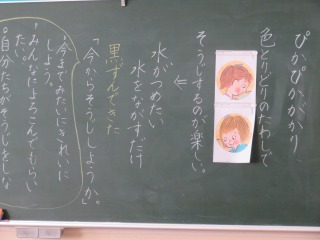 ぴかぴかがかり
色とりどりのたわしで
そうじするのが楽しい。
⇐
水がつめたい
水をながすだけ
黒ずんできた
「今からそうじしようか。」
・今までみたいにきれいに
しよう。
・みんなによろこんでもらい
たい。
・自分たちがそうじをしな